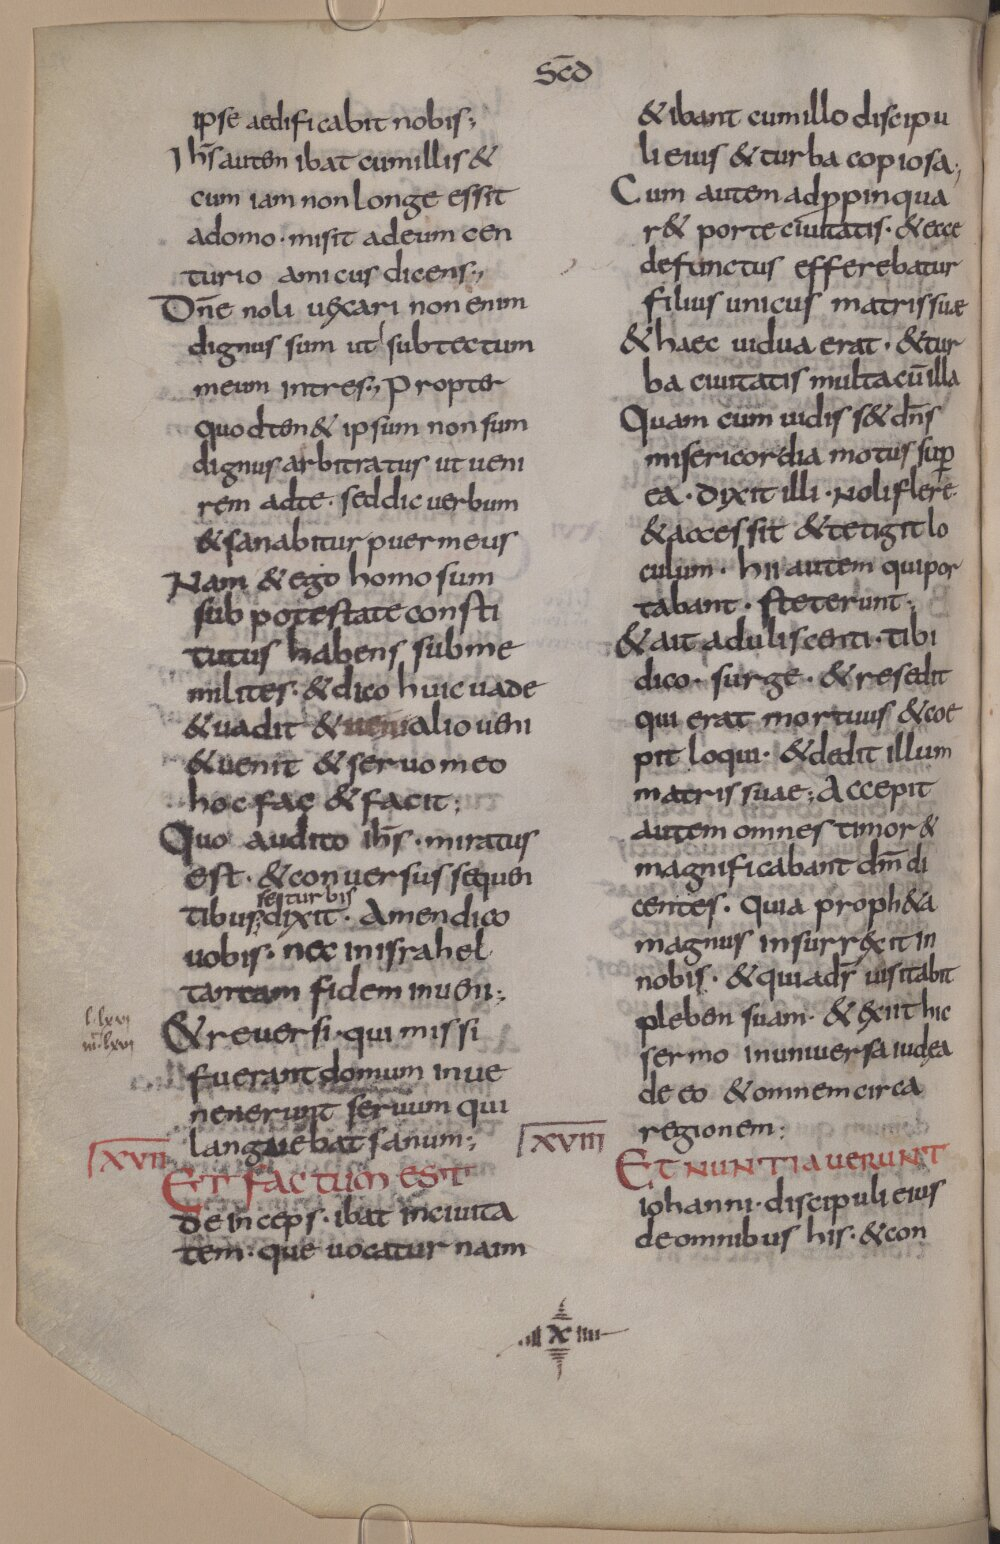 Sc̄d
ipse aedificabit nobis;
Ihs̄ autem ibat cumillis &
cum iam nonlonge essit
adomo · misit adeum cen
turio amicus dicens;
Dn̄e noli uexari non enim
dignus sum ut subtectum
meum intres; Propter
quodten& ipsum non sum
dignus arbitratus ut ueni
rem adte · seddic uerbum
& sanabitur puer meus
Nam & ego homo sum
sub potestate consti
tutus habens sub me
milites · & dico huic uade
& uadit & alio ueni
& uenit & seruo meo
hoc fac & facit;
Quo audito ihs̄ · miratus
est · & conuersus sequen
se turbis
tibus; dixit · Amen dico
uobis · nec inisrahel
tantam fidem inueni;
l·lxvi
m̄·lxvi
& reuersi · qui missi
fuerant domum inue
nenerunt seruum qui
languebat sanum;
XVII
ET FACTUM EST
deinceps · ibat inciuita
tem · que uocatur naim
& ibant cumillo discipu
li eius & turba copiosa;
Cum autem adppinqua
r& porte ciuitatis · & ecce
defunctus efferebatur
filius unicus matris suae
& haec uidua erat · & tur
ba ciuitatis multa cū illa
Quam cum uidis s& dn̄s
misericordia motus sup
ea · dixit illi · Noli flere
& accessit & tetigit lo
culum · hii autem qui por
tabant · steterunt ·
& ait aduliscenti · tibi
dico · surge · & resedit
qui erat mortuus & coe
pit loqui · & dedit illum
matri suae; Accepit
autem omnes timor &
magnificabant dm̄ di
centes · quia proph&a
magnus insurrexit in
nobis · & quia ds̄ uisitabit
pleben suam · & exiit hic
sermo inuniuersa iudea
de eo & omnem circa
regionem;
XVIII
ET NUNTIAUERUNT
iohanni · discipuli eius
de omnibus his · & con
X